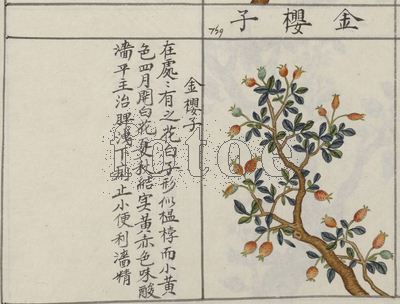 金櫻子
金櫻子
在處〻有之花白子形似榲桲而小黃
色四月開白花夏秋結实黃赤色味酸
濇平主治脾洩下痢止小便利濇精